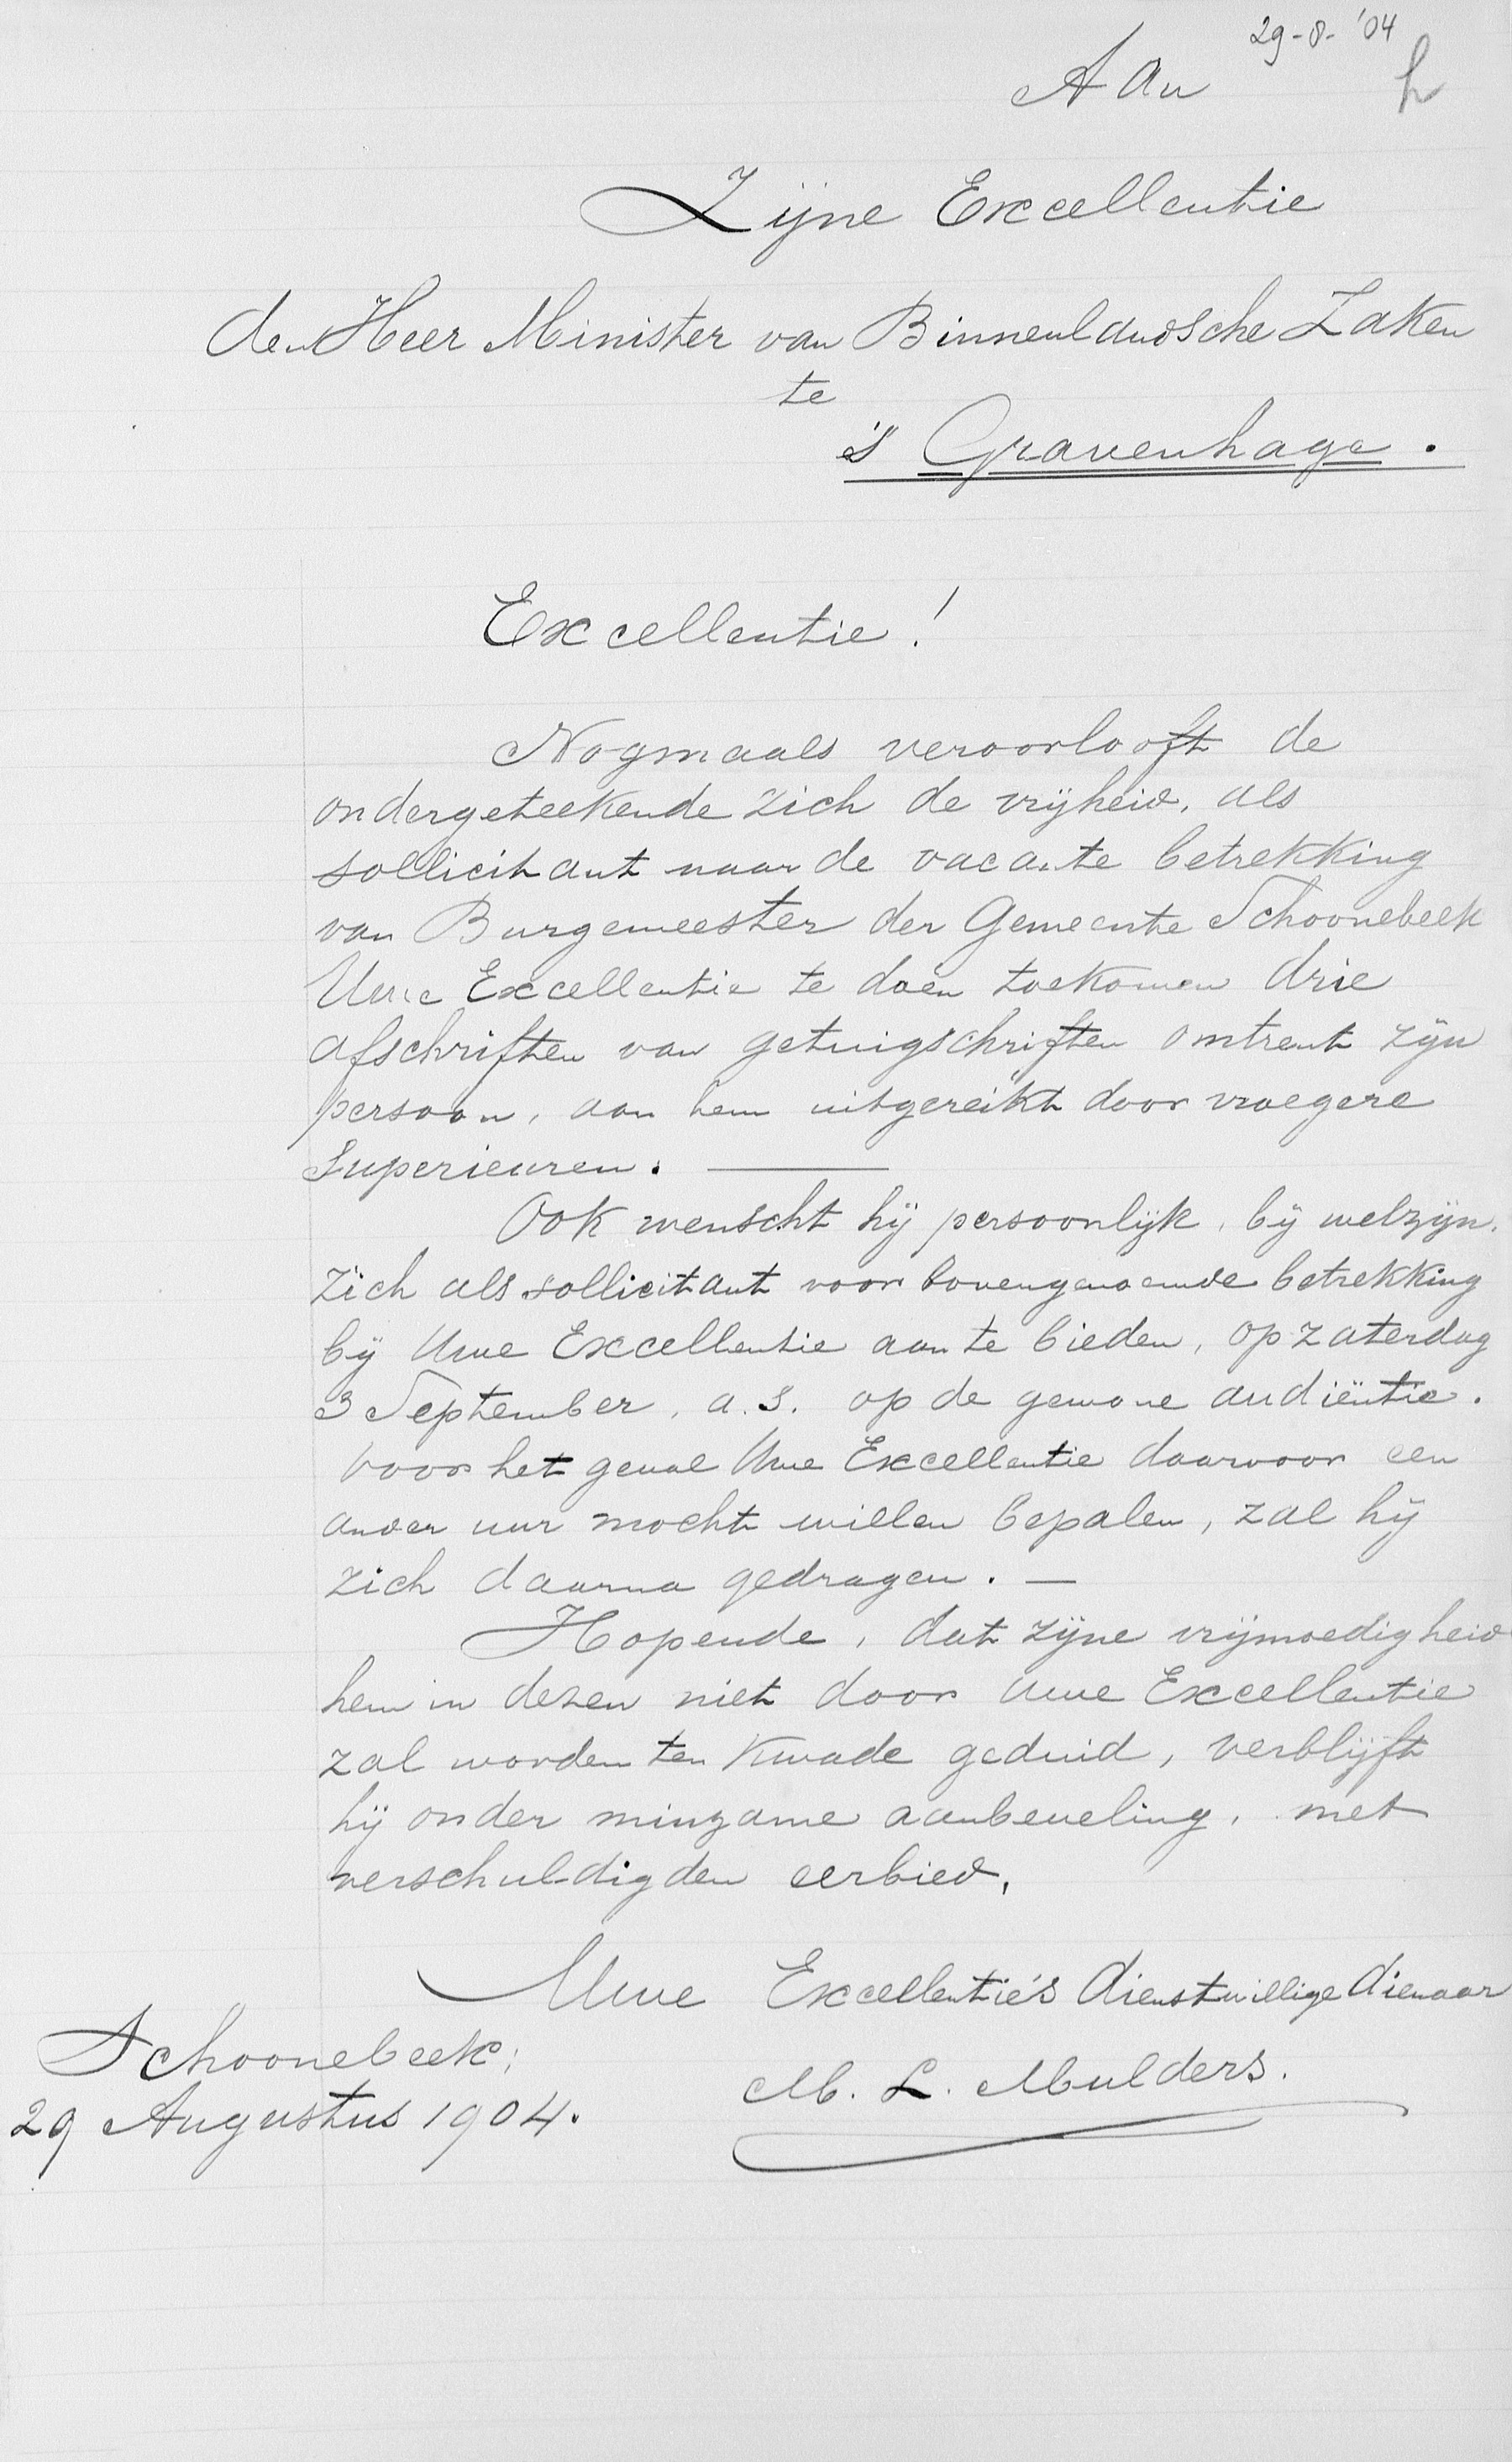 29-8-'04
Aan
h
Zijne Excellentie
den Heer Minister van Binnenlandsche Zaken
te
's Gravenhage.
Excellentie!
Nogmaals veroorlooft de
ondergeteekende zich de vrijheid, als
sollicitant naar de vacante betrekking
van Burgemeester der Gemeente Schoonebeek
Uwe Excellentie te doen toekomen drie
afschriften van getuigschriften omtrent zijn
persoon, aan hem uitgereikt door vroegere
Superieuren. —
Ook wenscht hij persoonlijk, bij welzijn,
zich als sollicitant voor bovengenoemde betrekking
bij Uwe Excellentie aan te bieden, op zaterdag
3 September, a.s. op de gewone audiëntie.
Voor het geval Uwe Excellentie daarvoor een
ander uur mocht willen bepalen, zal hij
zich daarna gedragen. —
Hopende, dat zijne vrijmoedigheid
hem in dezen niet door Uwe Excellentie
zal worden ten kwade geduid, verblijft
hij onder minzame aanbeveling, met
verschuldigden eerbied,
Uwe Excellentie's dienstwillige dienaar
Schoonebeek,
M. L. Mulders.
29 Augustus 1904.